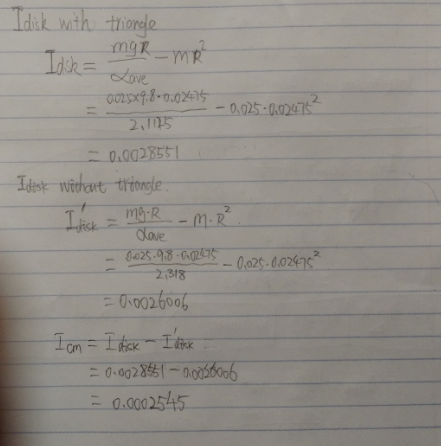 I disk with triangle
I disk = mgR/αave − mR²
= 0.025×9.8·0.02475/2.1175 − 0.025·0.02475²
= 0.0028551
I disk without triangle.
I'disk = mg·R/αave − m·R².
= 0.025·9.8·0.02475/2.318 − 0.025·0.02475²
= 0.0026006
Icm = I disk − I'disk.
= 0.0028551 − 0.0026006
= 0.0002545